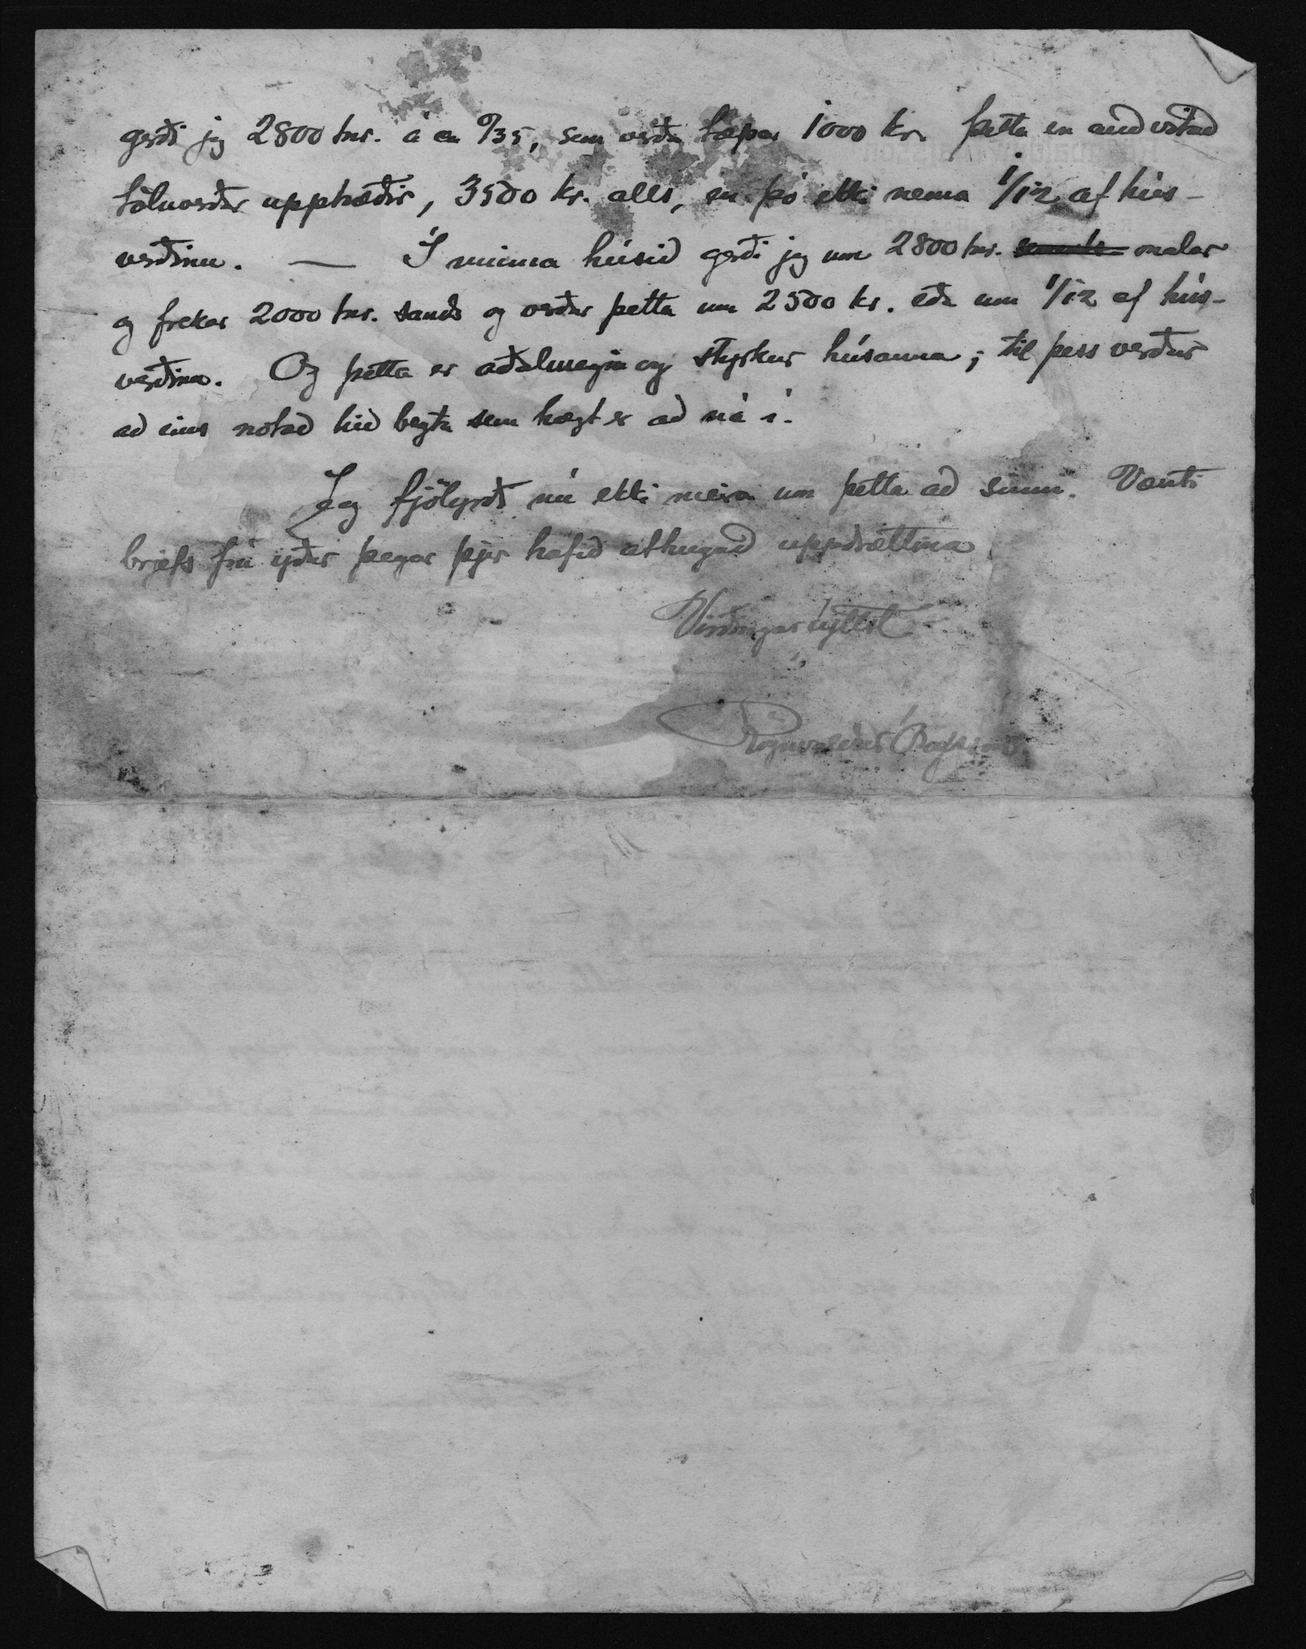 gerði jeg 2800 tnr. á ca 0/35, sem verða tæpar 1000 kr. Þetta eru auðvitað
töluverðar upphæðir, 3500 kr. alls, en þó ekki nema 1/12 af hús-
verðinu. — Í minna húsið gerði jeg um 2800 tnr. sands malar
og frekar 2000 tnr. sands og verður þetta um 2500 kr. eða um 1/12 af hús-
verðinu. Og þetta er aðalmegin og styrkur húsanna; til þess verður
að eins notað hið bezta sem hægt er að ná í.
Jeg fjölyrði nú ekki meira um þetta að sinni. Vænti
brjefs frá yður þegar þjer hafið athugað uppdrættina.
Virðingarfyllst
Rögnvaldur Ólafsson.